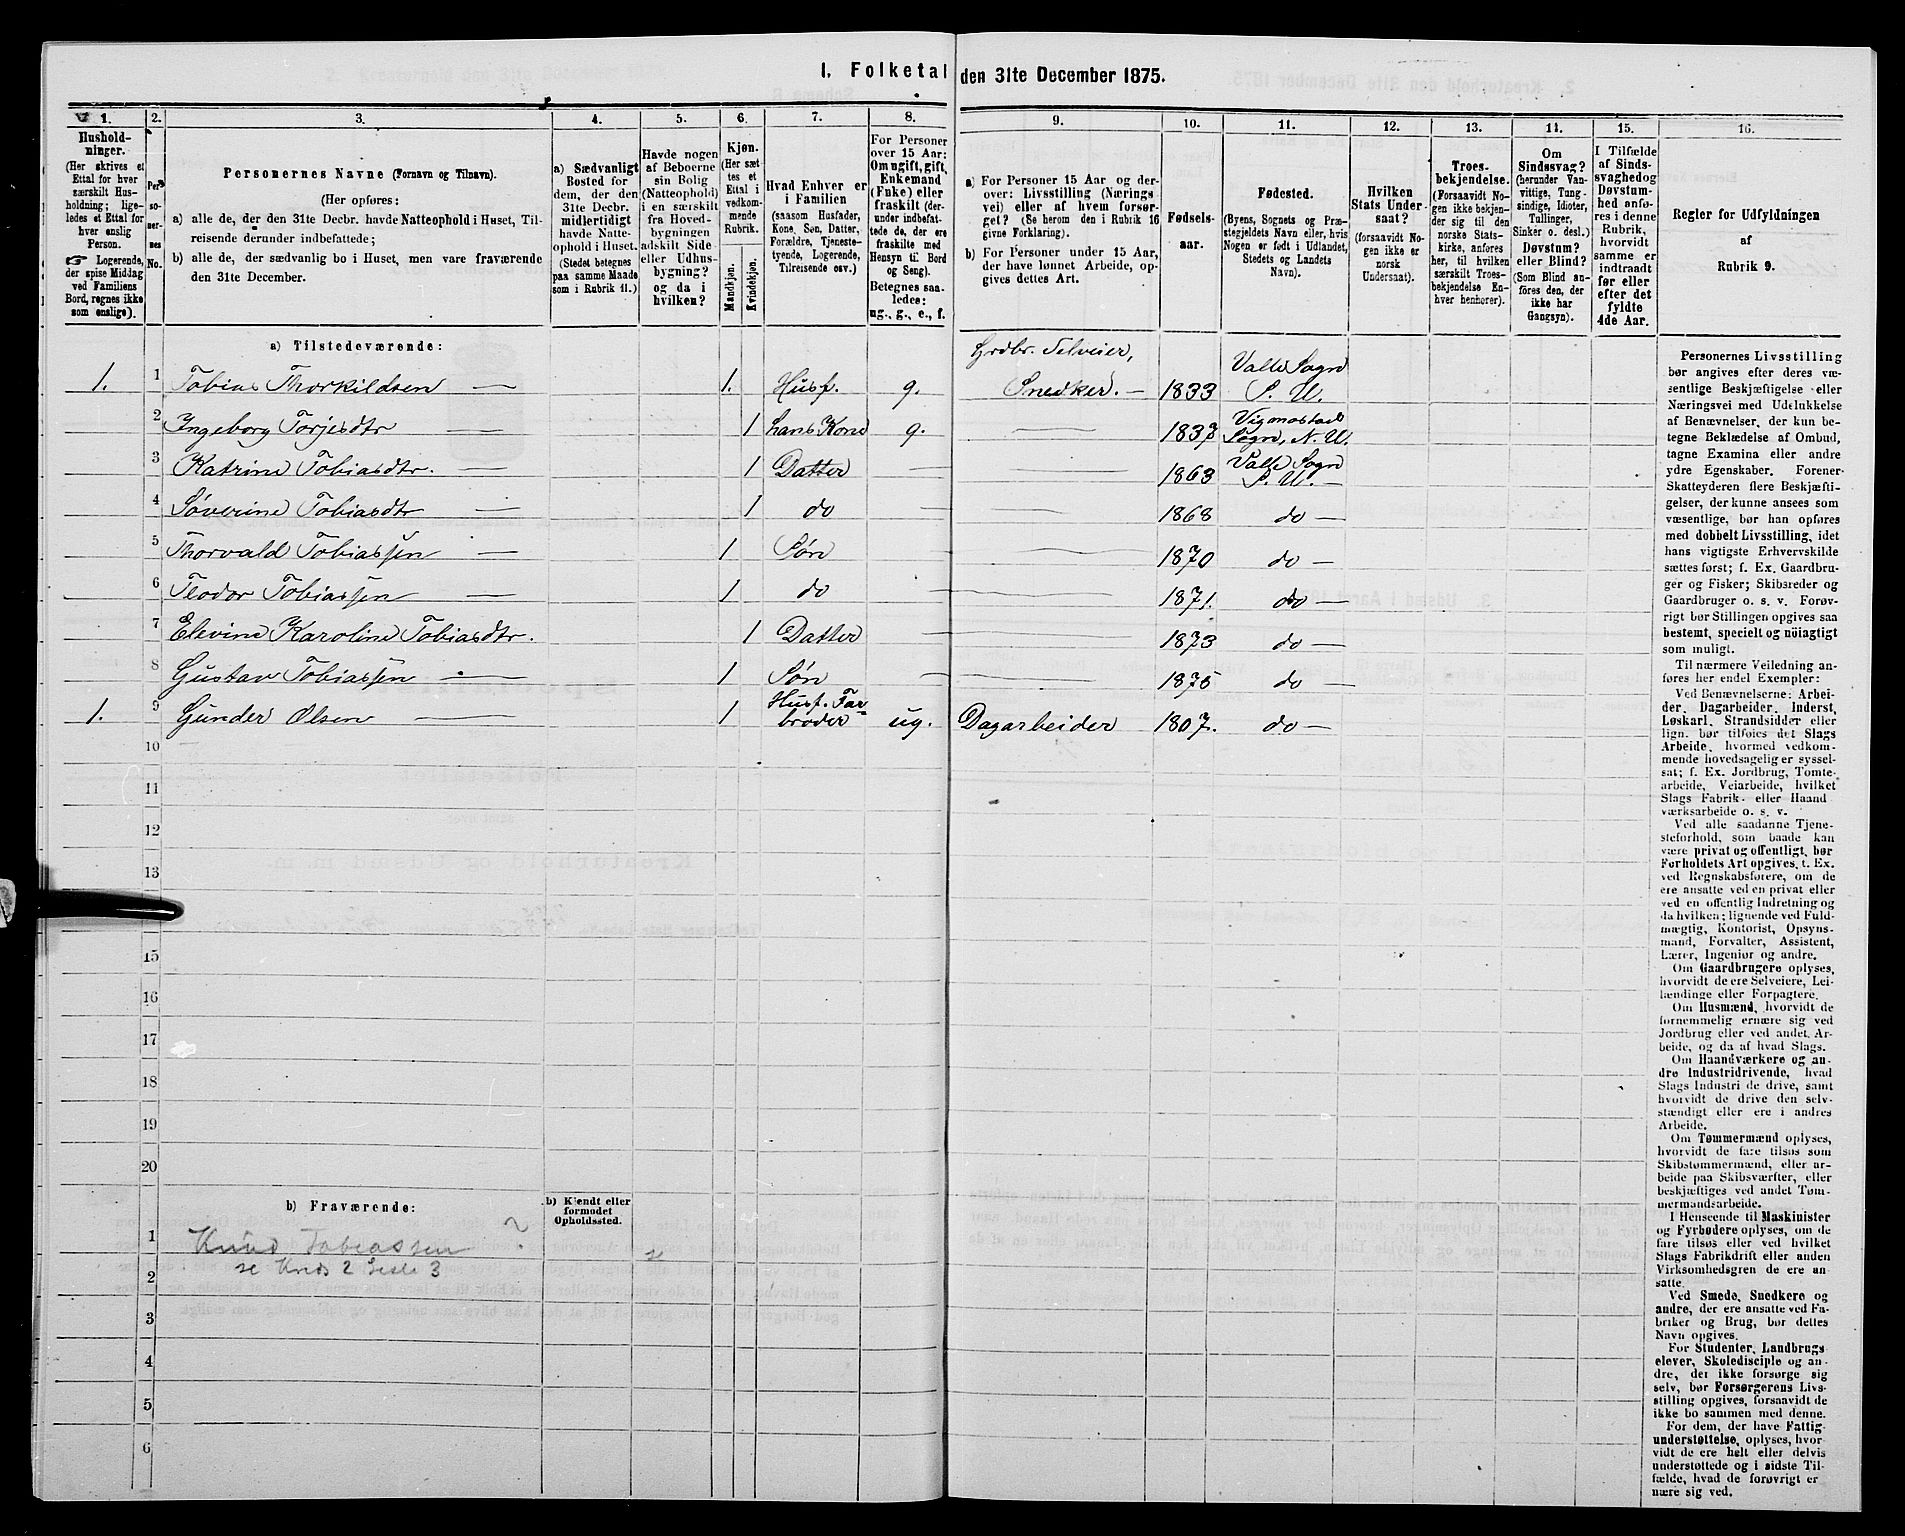 I. Folketal den 31te December 1875.
1. 2. 3. 4. 5. 6. 7. 8. 9. 10. 11. 12. 13. 14. 15. 16.
Hushold-
ninger.
(Her skrives et
Ettal for hver
særskilt Hus-
holdning; lige-
ledes et Ettal for
hver enslig
Person.
☞ Logerende,
der spise Middag
ved Familiens
Bord, regnes ikke
som enslige).
Per-
so-
ner-
nes
No.
Personernes Navne (Fornavn og Tilnavn).
(Her opføres:
a) alle de, der den 31te Decbr. havde Natteophold i Huset, Til-
reisende derunder indbefattede;
b) alle de, der sædvanlig bo i Huset, men vare fraværende
den 31te December.
a) Sædvanligt
Bosted for
dem, der den
31te Decbr.
midlertidigt
havde Natte-
ophold i Huset.
(Stedet betegnes
paa samme Maade
som i Rubrik 11.)
Havde nogen
af Beboerne
sin Bolig
(Natteophold)
i en særskilt
fra Hoved-
bygningen
adskilt Side-
eller Udhus-
bygning?
og da i
hvilken?
Kjøn.
(Her sæt-
tes et
Ettal i
vedkom-
mende
Rubrik.
Mandkjøn.
Kvindekjøn.
Hvad Enhver er
i Familien
(saasom Husfader,
Kone, Søn, Datter,
Forældre, Tjeneste-
tyende, Logerende,
Tilreisende osv.)
For Personer
over 15 Aar:
Om ugift, gift,
Enkemand
(Enke) eller
fraskilt (der-
under indbefat-
tede de, der ere
fraskilte med
Hensyn til Bord
og Seng).
Betegnes saa-
ledes:
ug., g., e., f.
a) For Personer 15 Aar og der-
over: Livsstilling (Nærings-
vei) eller af hvem forsør-
get? (Se herom den i Rubrik 16
givne Forklaring).
b) For Personer under 15 Aar,
der have lønnet Arbeide, op-
gives dettes Art.
Fødsels-
aar.
Fødested.
(Byens, Sognets og Præ-
stegjeldets Navn eller, hvis
Nogen er født i Udlandet,
Stedets og Landets
Navn).
Hvilken
Stats Under-
saat?
(forsaavidt No-
gen ikke er
norsk
Undersaat).
Troes-
bekjendelse.
(Forsaavidt No-
gen ikke bekjen-
der sig til den
norske Stats-
kirke, anføres
her, til hvilken
særskilt Troes-
bekjendelse En-
hver henhører).
Om
Sindssvag?
(herunder Van-
vittige, Tung-
sindige, Idioter,
Tullinger,
Sinker o. desl.)
Døvstum?
eller Blind?
(Som Blind an-
føres den, der
ikke har
Gangsyn).
I Tilfælde
af Sinds-
svaghed og
Døvstum-
hed anfø-
res i denne
Rubrik,
hvorvidt
samme er
indtraadt
før eller
efter det
fyldte
4de Aar.
Regler for Udfyldningen
af
Rubrik 9.
a) Tilstedeværende:
1. 1 Tobias Thorkildsen — 1. Husf. g. Grdbr. Selveier,
Snedker. — 1833 Valle Sogn
S. U.
2 Ingeborg Torjesdtr — 1 hans Kone g. — 1837 Vigmostad
Sogn, N. U.
3 Katrine Tobiasdtr. — 1 Datter — 1863 Valle Sogn
S. U. —
4 Søverine Tobiasdtr — 1 do — 1868 do —
5 Thorvald Tobiassen — 1 Søn — 1870 do —
6 Teodor Tobiassen — 1 do — 1871. do —
7 Elevine Karoline Tobiasdtr. 1 Datter — 1873 do —
8 Gustav Tobiassen — 1 Søn — 1875 do —
1. 9 Gunder Olsen — 1 Husf. Far-
broder ug. Dagarbeider 1807. do —
10
11
12
13
15
16
17
18
19
20
b) Fraværende:
b) Kjendt eller
formodet
Opholdssted.
1 Knud Tobiassen ?
se Kreds 2 Liste 3
2
3
4
5
6
Personernes Livsstilling
bør angives efter deres væ-
sentlige Beskjæftigelse eller
Næringsvei med Udelukkelse
af Benævnelser, der kun be-
tegne Beklædelse af Ombud,
tagne Examina eller andre
ydre Egenskaber. Forener
Skatteyderen flere Beskjæfti-
gelser, der kunne ansees som
væsentlige, bør han opføres
med dobbelt Livsstilling, idet
hans vigtigste Erhvervskilde
sættes først; f. Ex. Gaardbru-
ger og Fisker; Skibsreder og
Gaardbruger o. s. v. Forøv-
rigt bør Stillingen opgives saa
bestemt, specielt og nöiagtigt
som muligt.
Til nærmere Veiledning an-
føres her endel Exempler:
Ved Benævnelserne: Arbei-
der, Dagarbeider, Inderst,
Løskarl, Strandsidder eller
lign. bør tilføies det Slags
Arbeide, hvormed vedkom-
mende hovedsagelig er syssel-
sat; f. Ex. Jordbrug, Tomte-
arbeide, Veiarbeide, hvilket
Slags Fabrik- eller Haand
værksarbeide o. s. v.
Ved alle saadanne Tjene-
steforhold, som baade kan
være privat og offentligt, bør
Forholdets Art opgives, t. Ex.
ved Regnskabsførere, om de
ere ansatte ved en privat eller
ved en offentlig Indretning og
da hvilken; lignende ved Fuld-
mægtig, Kontorist, Opsyns-
mand, Forvalter, Assistent,
Lærer, Ingeniør og andre.
Om Gaardbrugere oplyses,
hvorvidt de ere Selveiere, Lei-
lændinge eller Forpagtere.
Om Husmænd, hvorvidt de
fornemmelig ernære sig ved
Jordbrug eller ved andet Ar-
beide, og da af hvad Slags.
Om Haandværkere og an-
dre Industridrivende, hvad
Slags Industri de drive, samt
hvorvidt de drive den selv-
stændigt eller ere i andres
Arbeide.
Om Tømmermænd oplyses,
hvorvidt de fare tilsøs som
Skibstømmermænd, eller ar-
beide paa Skibsværfter, eller
beskjæftiges ved andet Tøm-
mermandsarbeide.
I Henseende til Maskinister
og Fyrbødere oplyses, om de
fare tilsøs eller ved hvilket
Slags Fabrikdrift eller anden
Virksomhedsgren de ere an-
satte.
Ved Smede, Snedkere og
andre, der ere ansatte ved Fa-
briker og Brug, bør dettes
Navn opgives.
For Studenter, Landbrugs
elever, Skoledisciple og an-
dre, der ikke forsørge sig
selv, bør Forsørgerens Livs-
stilling opgives, forsaavidt de
ikke bo sammen med denne.
For dem, der have Fattig
understøttelse, oplyses, hvor-
vidt de ere helt eller delvis
understøttede og i sidste Til-
fælde, hvad de forøvrigt er
nære sig ved.